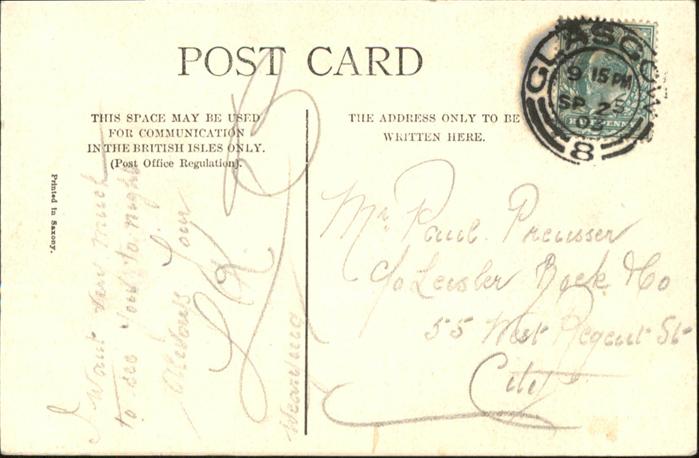 POST CARD
THIS SPACE MAY BE USED
FOR COMMUNICATION
IN THE BRITISH ISLES ONLY.
(Post Office Regulation).
THE ADDRESS ONLY TO BE
WRITTEN HERE.
Printed in Saxony.
GLASGOW
9 15 PM
SP 25
8
HALFPENNY
I want very much
to see you to night
Always Your
Mr Paul Preusser
c/o Leisler Bock & Co
55 West Regent St
City